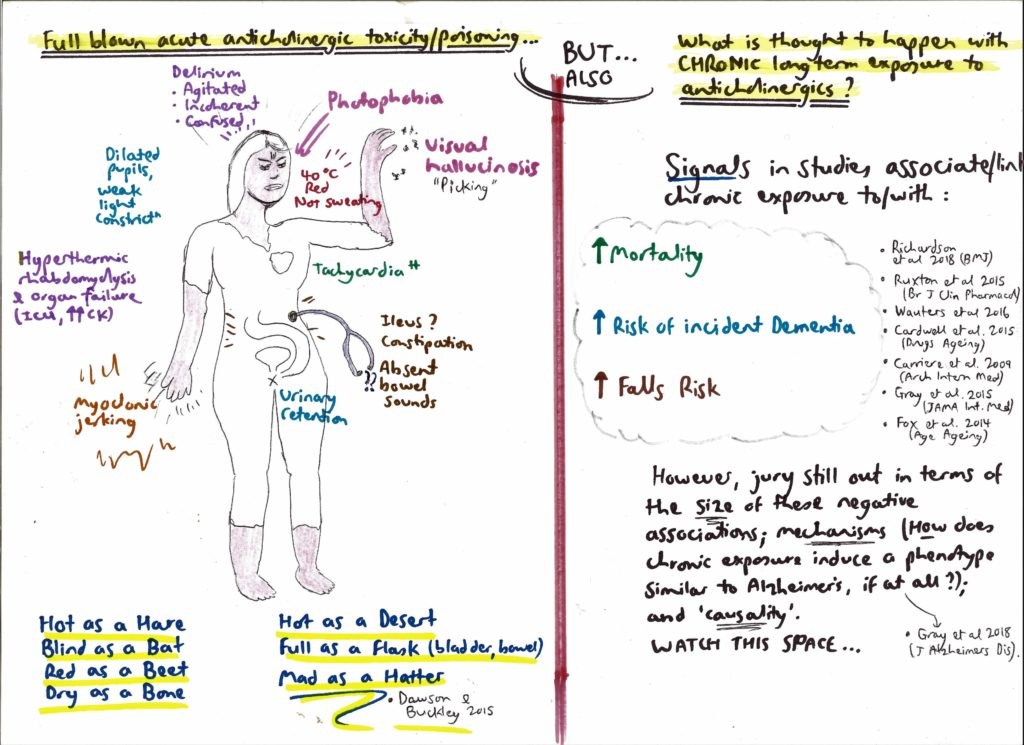 Full blown acute anticholinergic toxicity/poisoning...
BUT...
ALSO
What is thought to happen with
CHRONIC long term exposure to
anticholinergics?
Delirium
• Agitated
• Incoherent
• Confused
Photophobia
Dilated
pupils,
weak
light
constrictⁿ
40°C
Red
Not sweating
Visual
hallucinosis
"Picking"
Hyperthermic
rhabdomyolysis
& organ failure
(ICU, ↑↑CK)
Tachycardia
Ileus?
Constipation
??
Absent
bowel
sounds
Myoclonic
jerking
Urinary
retention
Hot as a Hare
Blind as a Bat
Red as a Beet
Dry as a Bone
Hot as a Desert
Full as a Flask (bladder, bowel)
Mad as a Hatter
• Dawson &
Buckley 2015
Signals in studies associate/link
chronic exposure to/with:
↑ Mortality
↑ Risk of incident Dementia
↑ Falls Risk
• Richardson
et al 2018 (BMJ)
• Ruxton et al 2015
(Br J Clin Pharmacol)
• Wauters et al 2016
• Cardwell et al. 2015
(Drugs Ageing)
• Carriere et al. 2009
(Arch Intern Med)
• Gray et al. 2015
(JAMA Int. Med)
• Fox et al. 2014
(Age Ageing)
However, jury still out in terms of
the size of these negative
associations; mechanisms (How does
chronic exposure induce a phenotype
similar to Alzheimer's, if at all?);
and 'causality'.
WATCH THIS SPACE...
• Gray et al 2018
(J Alzheimers Dis).